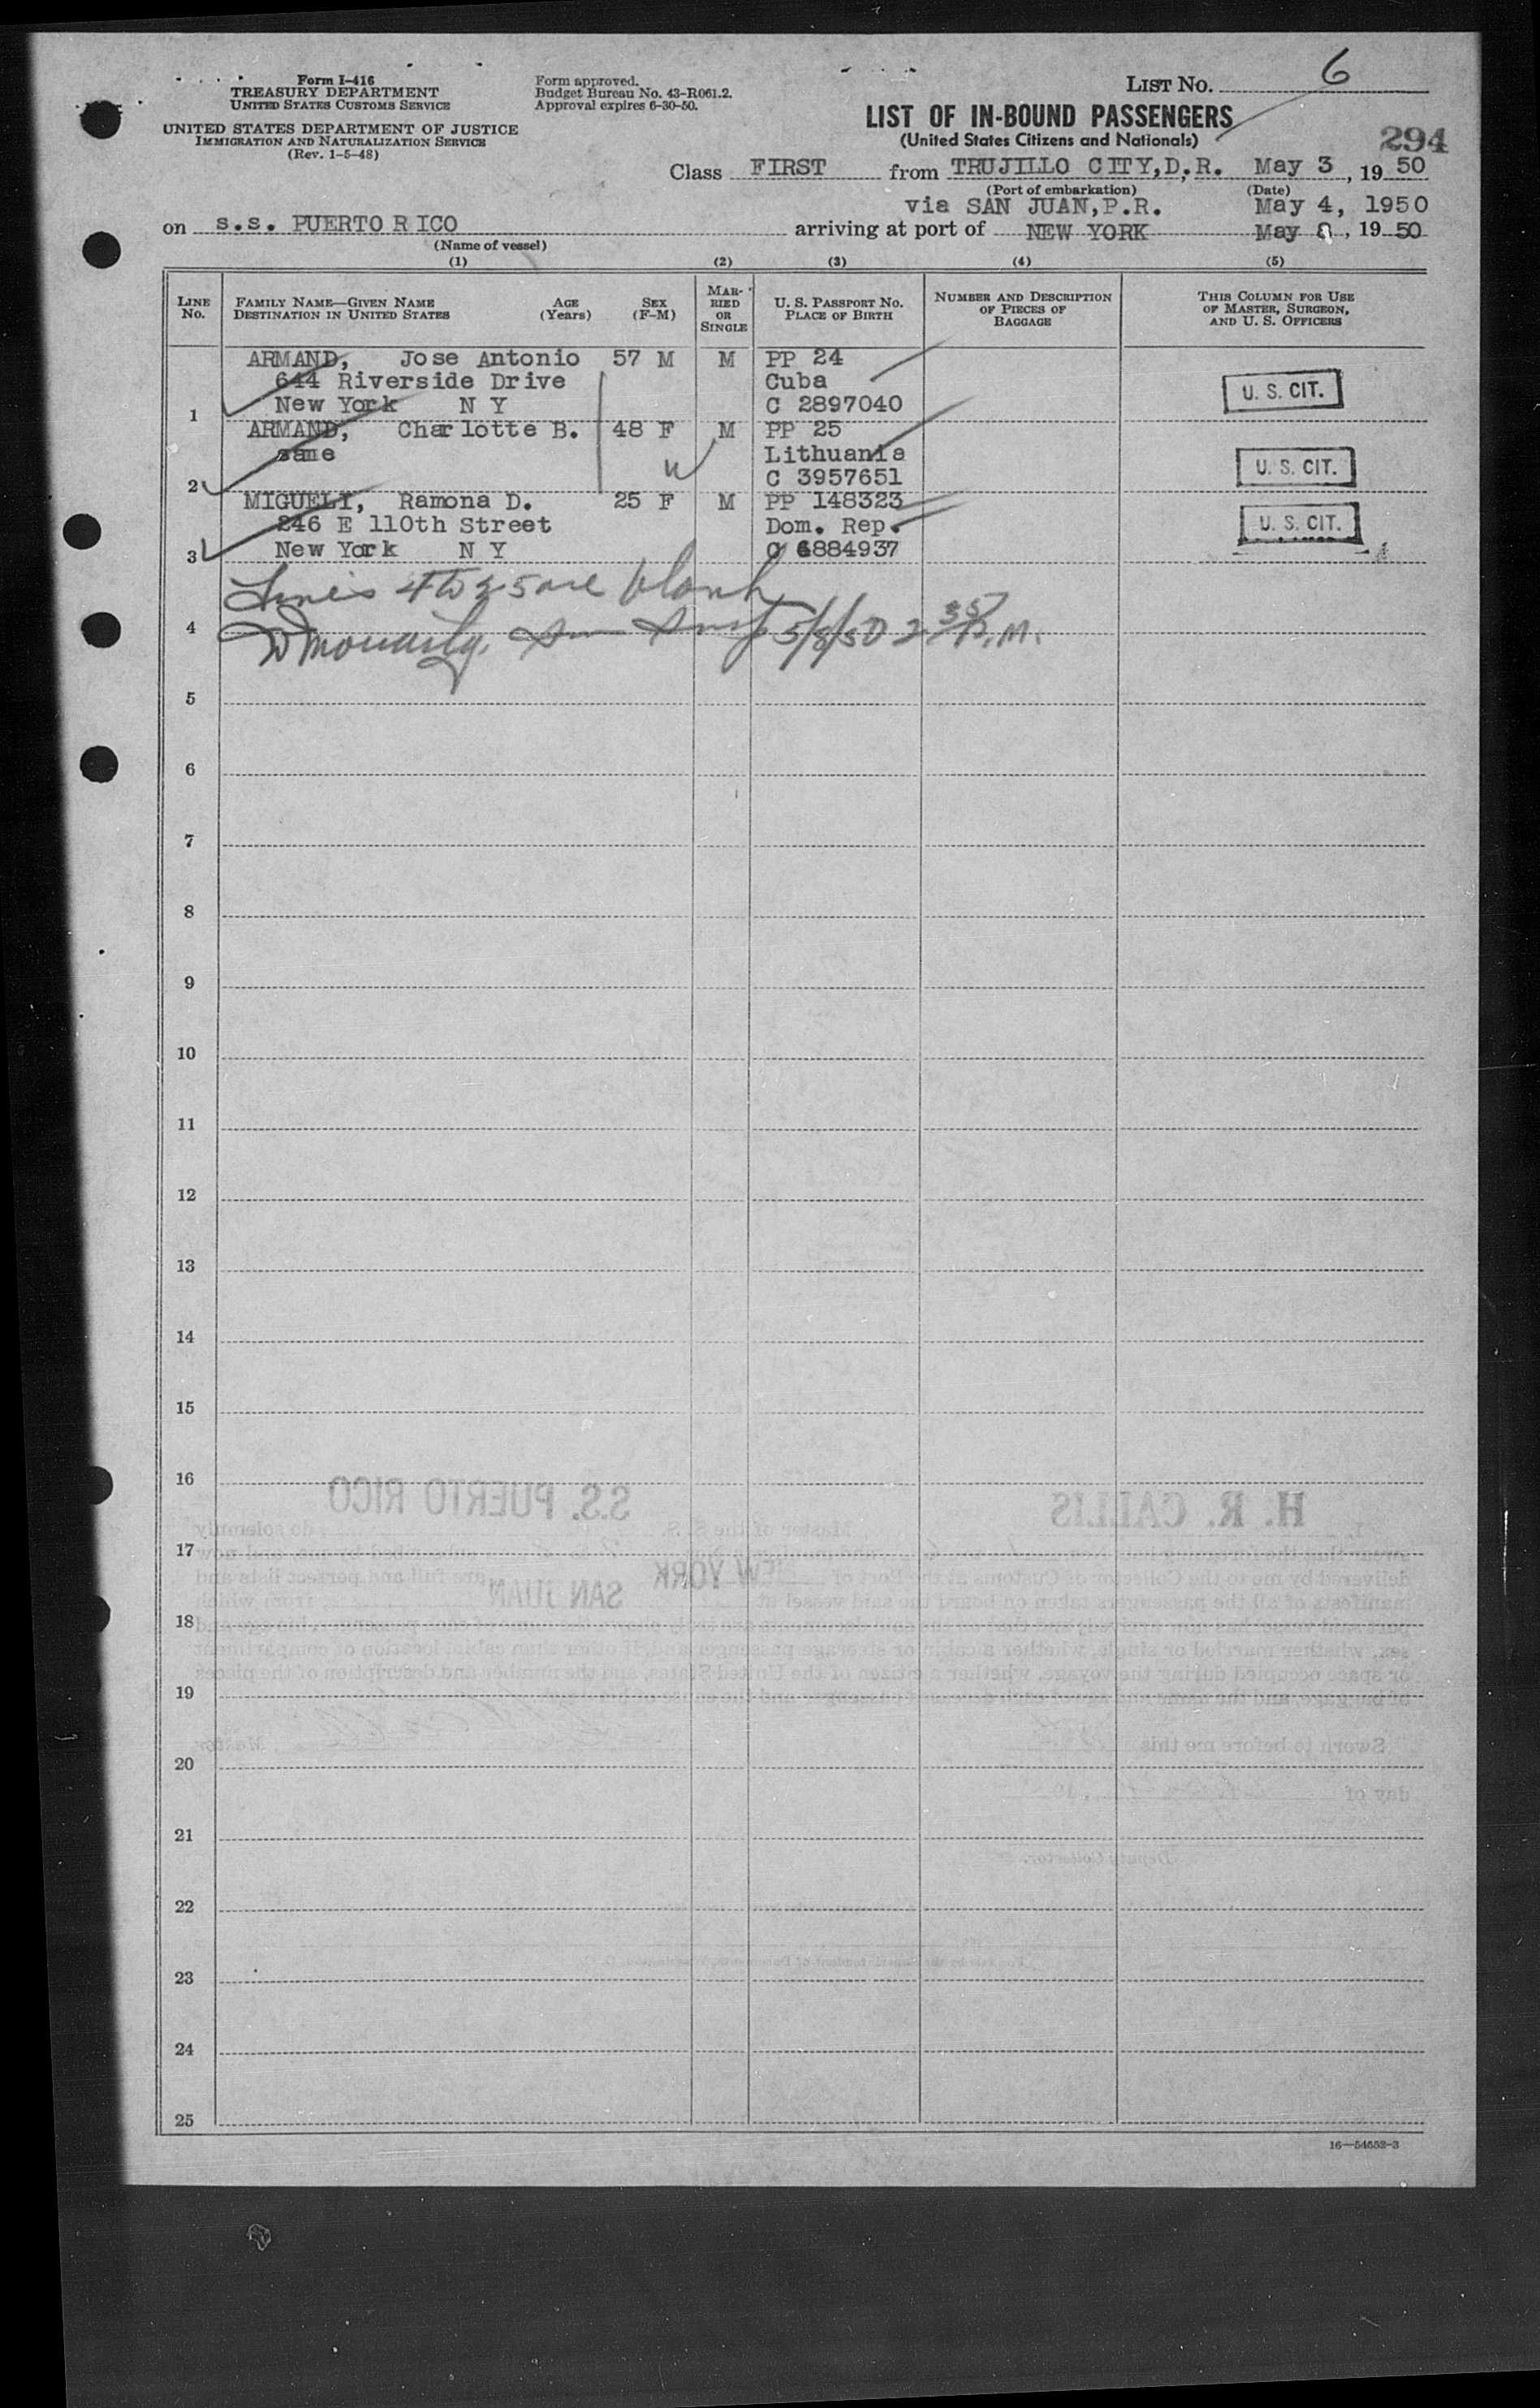 Form I-416
TREASURY DEPARTMENT
UNITED STATES CUSTOMS SERVICE
UNITED STATES DEPARTMENT OF JUSTICE
IMMIGRATION AND NATURALIZATION SERVICE
(Rev. 1-5-48)
Form approved.
Budget Bureau No. 43-R061.2.
Approval expires 6-30-50.
LIST NO. 6
LIST OF IN-BOUND PASSENGERS
(United States Citizens and Nationals)
294
Class FIRST from TRUJILLO CITY, D.R. May 3, 1950
(Port of embarkation) (Date)
via SAN JUAN, P.R. May 4, 1950
on s.s. PUERTO RICO arriving at port of NEW YORK May 8, 1950
(Name of vessel)
(1) (2) (3) (4) (5)
LINE NO.
FAMILY NAME—GIVEN NAME
DESTINATION IN UNITED STATES
AGE (Years)
SEX (F-M)
MARRIED OR SINGLE
U. S. PASSPORT NO.
PLACE OF BIRTH
NUMBER AND DESCRIPTION OF PIECES OF BAGGAGE
THIS COLUMN FOR USE OF MASTER, SURGEON, AND U. S. OFFICERS
ARMAND, Jose Antonio 57 M M PP 24
644 Riverside Drive Cuba U. S. CIT.
1 New York N Y C 2897040
ARMAND, Charlotte B. 48 F M PP 25
same Lithuania U. S. CIT.
2 C 3957651
MIGUELI, Ramona D. 25 F M PP 148323
246 E 110th Street Dom. Rep. U. S. CIT.
3 New York N Y C 6884937
Lines 4 to 25 are blank
4 5/8/50 2 35 P.M.
5
6
7
8
9
10
11
12
13
14
15
16
S.S. PUERTO RICO H. R. CALLIS
17
NEW YORK
SAN JUAN
18
19
20
21
22
23
24
25
16—54652-3